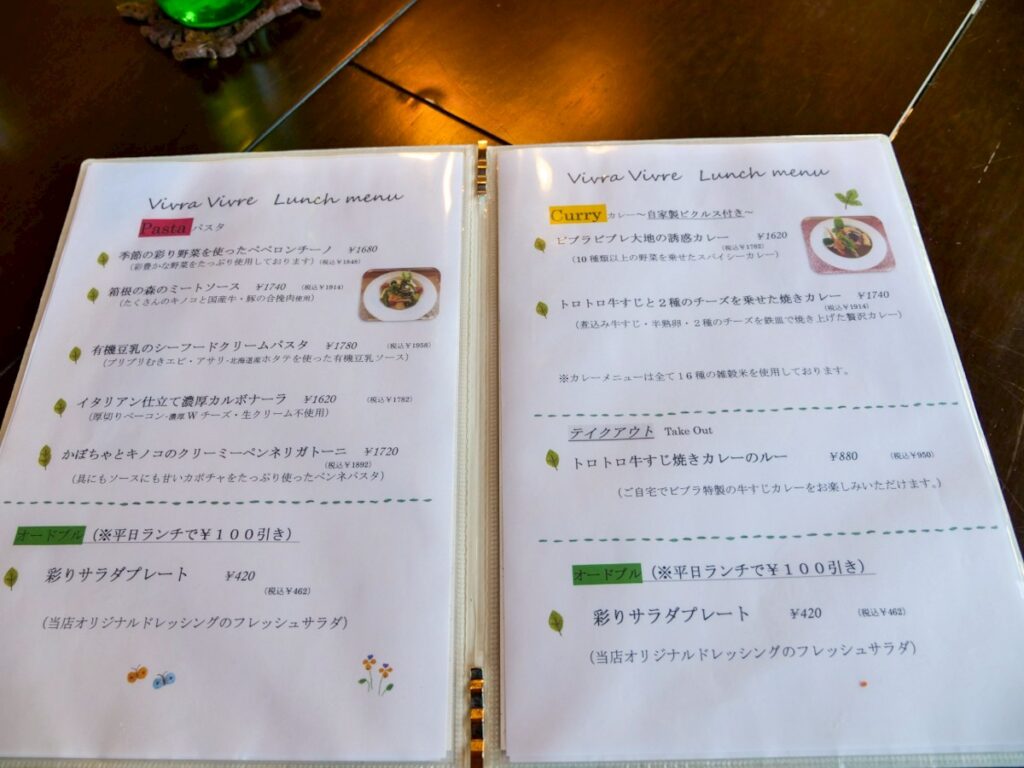 Vivra Vivre Lunch menu
Pasta パスタ
季節の彩り野菜を使ったペペロンチーノ ¥1680
(彩豊かな野菜をたっぷり使用しております) (税込¥1848)
箱根の森のミートソース ¥1740 (税込¥1914)
(たくさんのキノコと国産牛・豚の合挽肉使用)
有機豆乳のシーフードクリームパスタ ¥1780 (税込¥1958)
(プリプリむきエビ・アサリ・北海道産ホタテを使った有機豆乳ソース)
イタリアン仕立て濃厚カルボナーラ ¥1620 (税込¥1782)
(厚切りベーコン・濃厚Wチーズ・生クリーム不使用)
かぼちゃとキノコのクリーミーペンネリガトーニ ¥1720
(税込¥1892)
(具にもソースにも甘いカボチャをたっぷり使ったペンネパスタ)
オードブル (※平日ランチで¥100引き)
彩りサラダプレート ¥420
(税込¥462)
(当店オリジナルドレッシングのフレッシュサラダ)
Vivra Vivre Lunch menu
Curry カレー～自家製ピクルス付き～
ビブラビブレ大地の誘惑カレー ¥1620
(税込¥1782)
(10種類以上の野菜を乗せたスパイシーカレー)
トロトロ牛すじと2種のチーズを乗せた焼きカレー ¥1740
(税込¥1914)
(煮込み牛すじ・半熟卵・2種のチーズを鉄皿で焼き上げた贅沢カレー)
※カレーメニューは全て16種の雑穀米を使用しております。
テイクアウト Take Out
トロトロ牛すじ焼きカレーのルー ¥880 (税込¥950)
(ご自宅でビブラ特製の牛すじカレーをお楽しみいただけます。)
オードブル (※平日ランチで¥100引き)
彩りサラダプレート ¥420 (税込¥462)
(当店オリジナルドレッシングのフレッシュサラダ)